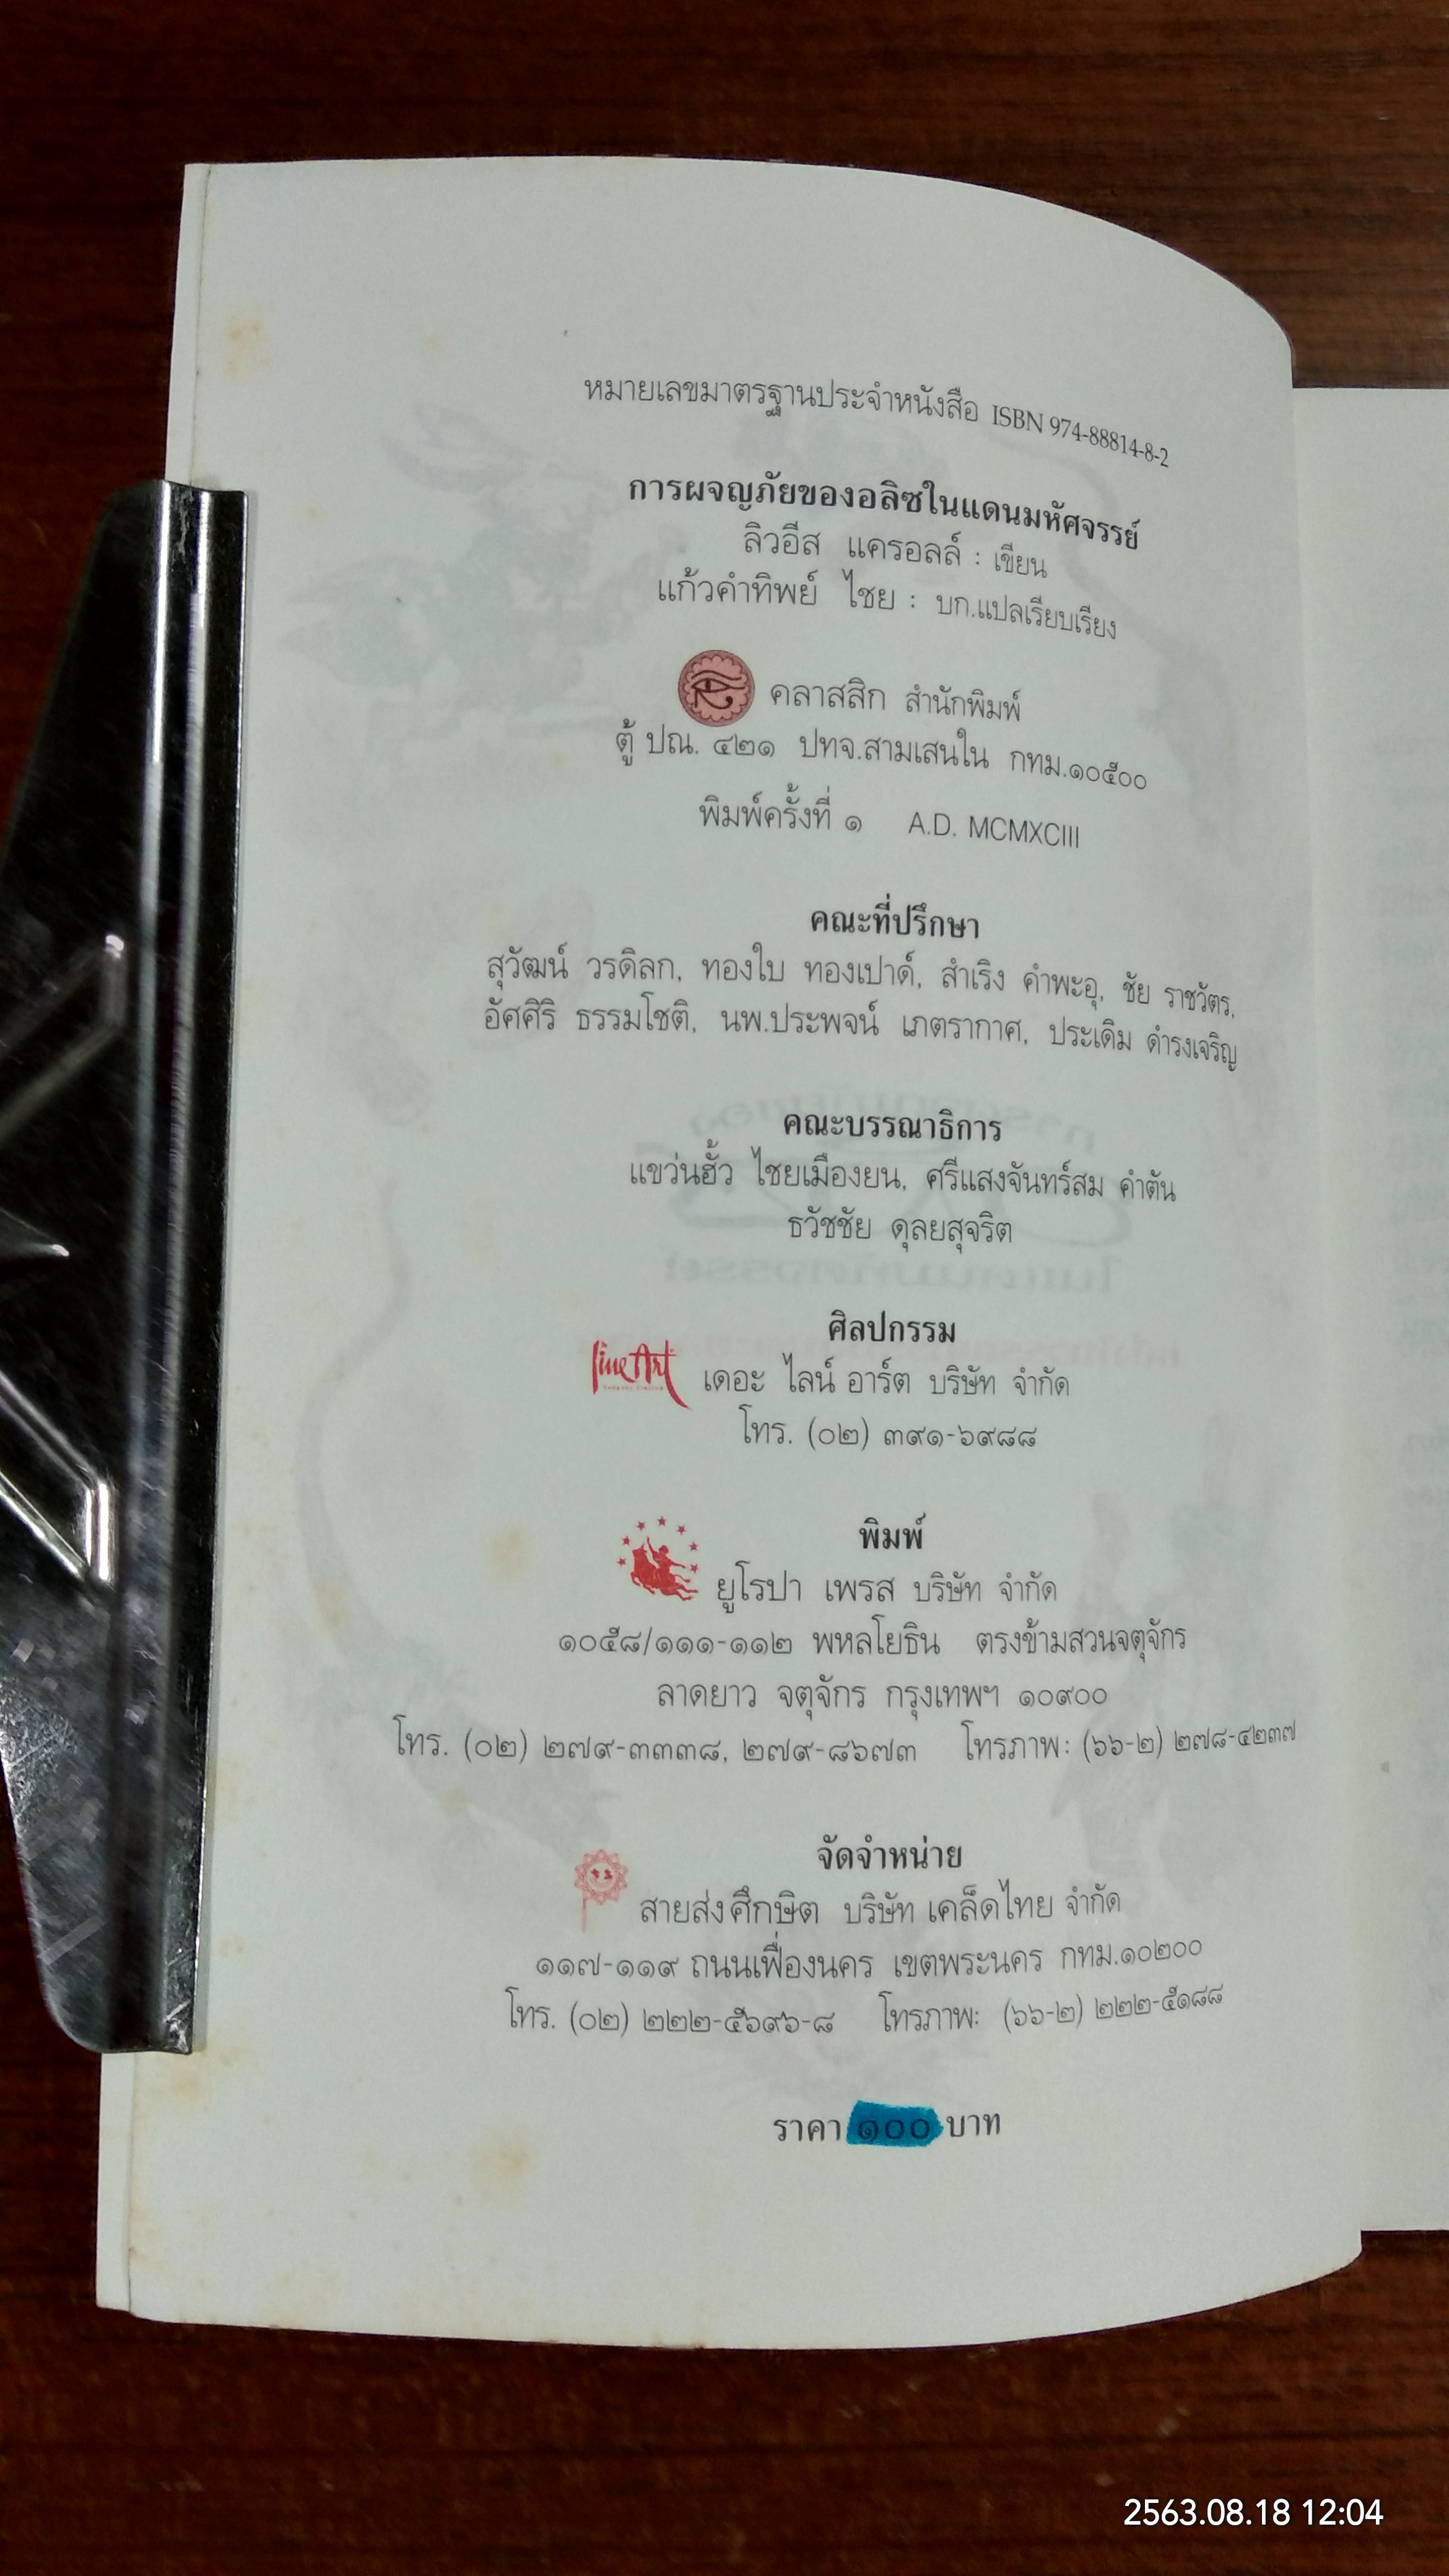 หมายเลขมาตรฐานประจำหนังสือ ISBN 974-88814-8-2
การผจญภัยของอลิซในแดนมหัศจรรย์
ลิวอีส แครอลล์ : เขียน
แก้วคำทิพย์ ไชย : บก.แปลเรียบเรียง
คลาสสิก สำนักพิมพ์
ตู้ ปณ. ๔๒๑ ปทจ.สามเสนใน กทม.๑๐๕๐๐
พิมพ์ครั้งที่ ๑ A.D. MCMXCIII
คณะที่ปรึกษา
สุวัฒน์ วรดิลก, ทองใบ ทองเปาด์, สำเริง คำพะอุ, ชัย ราชวัตร,
อัศศิริ ธรรมโชติ, นพ.ประพจน์ เภตรากาศ, ประเดิม ดำรงเจริญ
คณะบรรณาธิการ
แขว่นฮั้ว ไชยเมืองยน, ศรีแสงจันทร์สม คำตัน
ธวัชชัย ดุลยสุจริต
ศิลปกรรม
line Art เดอะ ไลน์ อาร์ต บริษัท จำกัด
โทร. (๐๒) ๓๙๑-๖๙๘๘
พิมพ์
ยูโรปา เพรส บริษัท จำกัด
๑๐๕๘/๑๑๑-๑๑๒ พหลโยธิน ตรงข้ามสวนจตุจักร
ลาดยาว จตุจักร กรุงเทพฯ ๑๐๙๐๐
โทร. (๐๒) ๒๗๙-๓๓๓๘, ๒๗๙-๘๖๗๓ โทรภาพ: (๖๖-๒) ๒๗๘-๔๒๓๗
จัดจำหน่าย
สายส่งศึกษิต บริษัท เคล็ดไทย จำกัด
๑๑๗-๑๑๙ ถนนเฟื่องนคร เขตพระนคร กทม.๑๐๒๐๐
โทร. (๐๒) ๒๒๒-๕๖๙๖-๘ โทรภาพ: (๖๖-๒) ๒๒๒-๕๑๘๘
ราคา ๑๐๐ บาท
2563.08.18 12:04